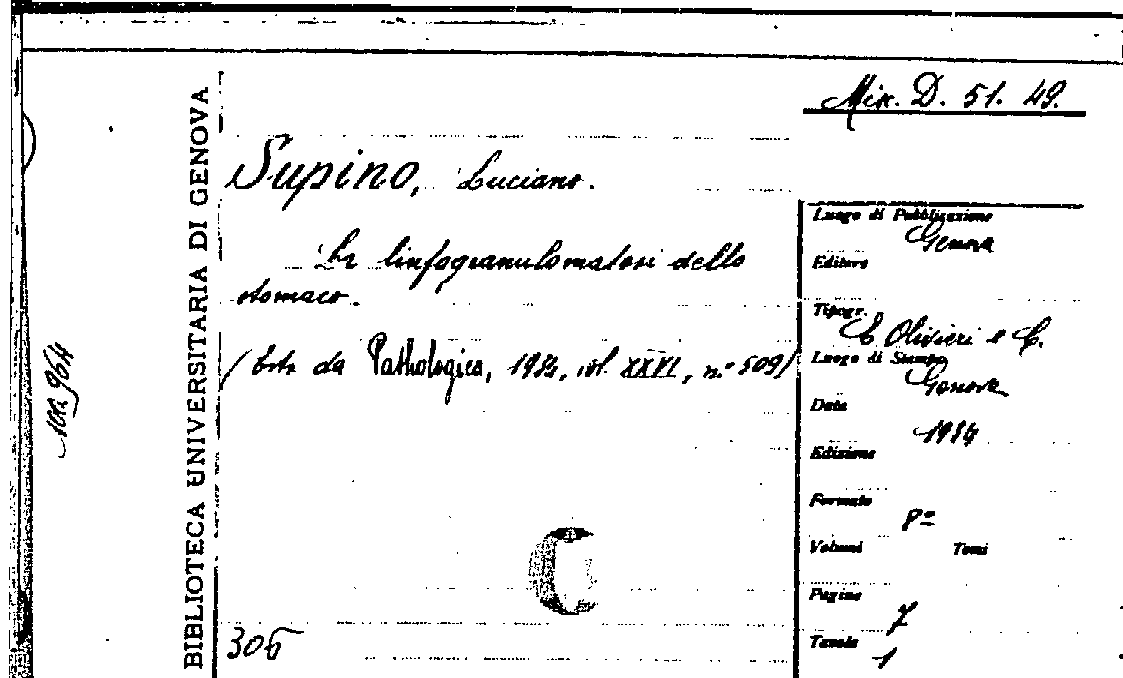 Mix. D. 51. 49.
BIBLIOTECA UNIVERSITARIA DI GENOVA
Supino, Luciano.
La linfogranulomatosi dello
stomaco.
(Estr. da Pathologica, 1934, vol. XXVI, n.º 509)
Luogo di Pubblicazione
Genova
Editore
Tipogr.
E. Olivieri e C.
Luogo di Stampa
Genova
Data
1934
Edizione
Formato
8º
Volumi Tomi
Pagine
7
Tavole
1
C
306
100.964